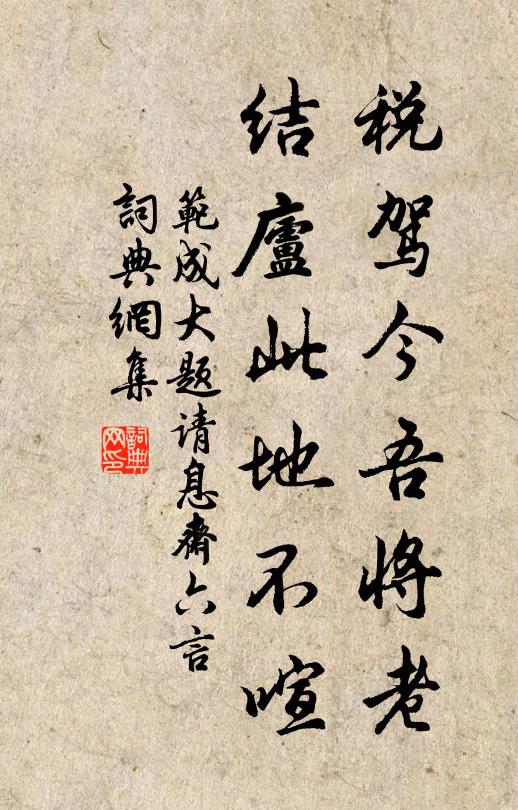 税驾今吾将老
结廬此地不喧
範成大题请息齋六言
詞典網集
詞典
网印